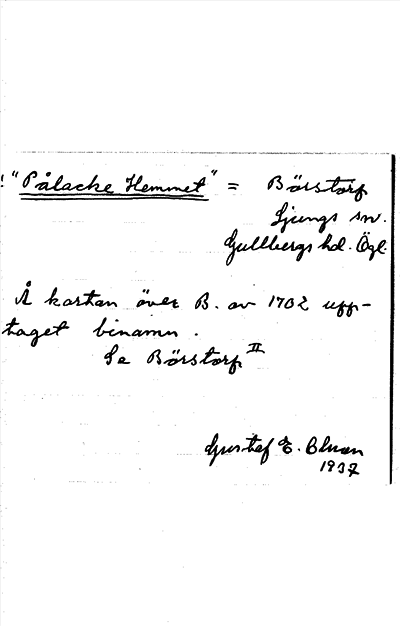 ! "Pålacke Hemmet" = Börstorp
Ljungs sn.
Gullbergs hd. Ögl.
Å kartan över B. av 1702 upp-
taget binamn.
Se Börstorp II
Gustaf E. Blman
1937